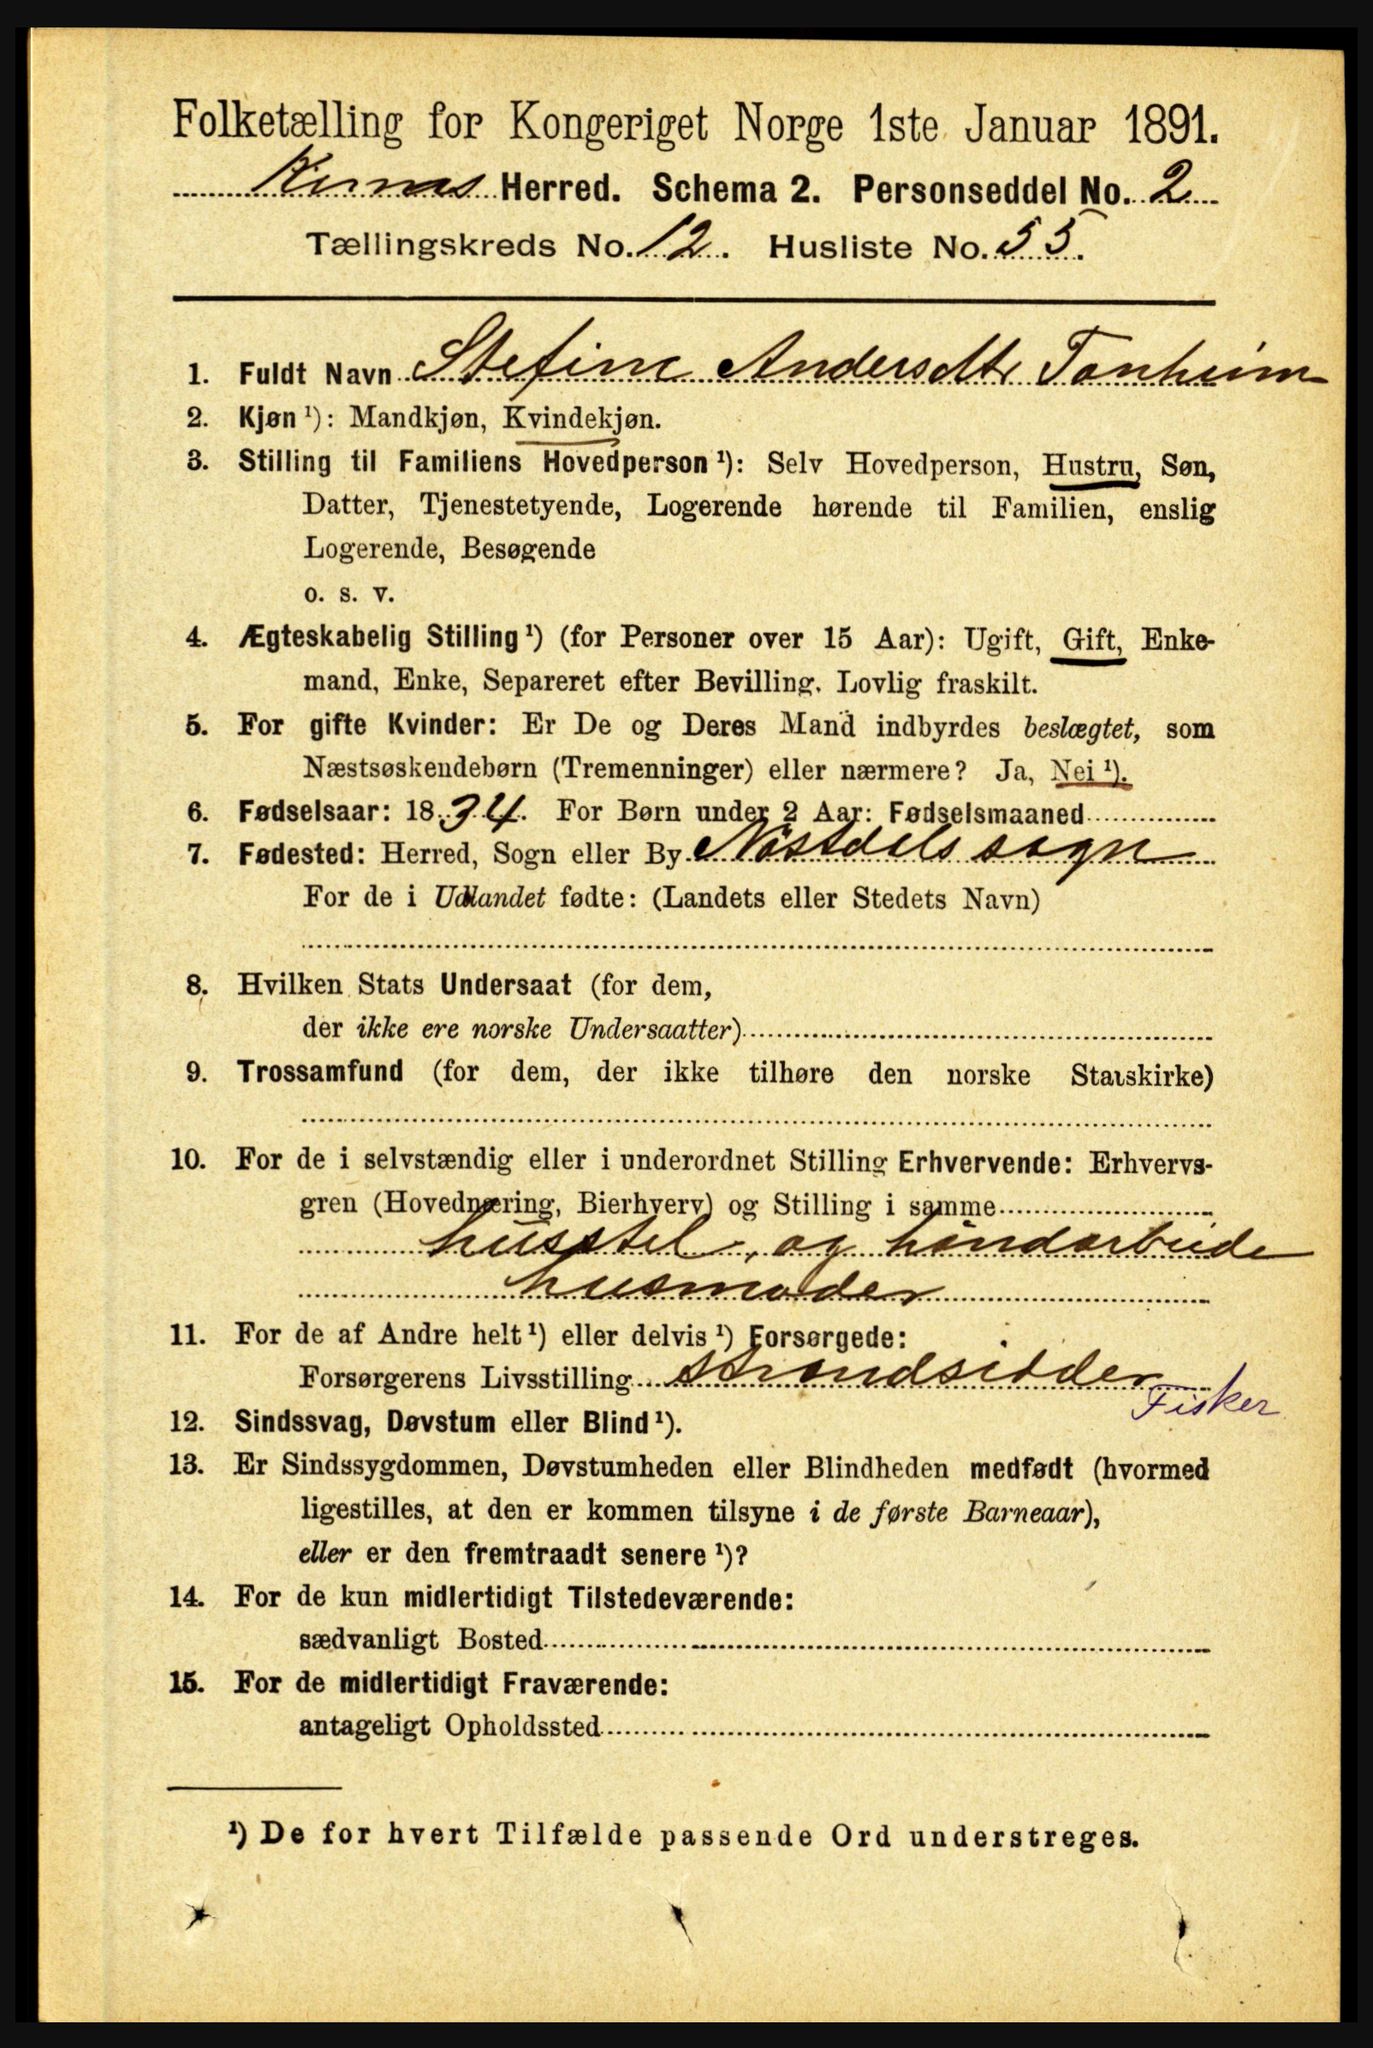 Folketælling for Kongeriget Norge 1ste Januar 1891.
Kinns Herred. Schema 2. Personseddel No. 2
Tællingskreds No. 12. Husliste No. 55.
1. Fuldt Navn Stefine Andersdtr Tonheim
2. Kjøn ¹): Mandkjøn, Kvindekjøn.
3. Stilling til Familiens Hovedperson ¹): Selv Hovedperson, Hustru, Søn,
Datter, Tjenestetyende, Logerende hørende til Familien, enslig
Logerende, Besøgende
o. s. v.
4. Ægteskabelig Stilling ¹) (for Personer over 15 Aar): Ugift, Gift, Enke-
mand, Enke, Separeret efter Bevilling. Lovlig fraskilt.
5. For gifte Kvinder: Er De og Deres Mand indbyrdes beslægtet, som
Næstsøskendebørn (Tremenninger) eller nærmere? Ja, Nei ¹).
6. Fødselsaar: 1834. For Børn under 2 Aar: Fødselsmaaned
7. Fødested: Herred, Sogn eller By Nøstdals sogn
For de i Udlandet fødte: (Landets eller Stedets Navn)
8. Hvilken Stats Undersaat (for dem,
der ikke ere norske Undersaatter)
9. Trossamfund (for dem, der ikke tilhøre den norske Statskirke)
10. For de i selvstændig eller i underordnet Stilling Erhvervende: Erhvervs-
gren (Hovednæring, Bierhverv) og Stilling i samme
husstel, og håndarbeide
husmoder
11. For de af Andre helt ¹) eller delvis ¹) Forsørgede:
Forsørgerens Livsstilling strandsidder
Fisker
12. Sindssvag, Døvstum eller Blind ¹).
13. Er Sindssygdommen, Døvstumheden eller Blindheden medfødt (hvormed
ligestilles, at den er kommen tilsyne i de første Barneaar),
eller er den fremtraadt senere ¹)?
14. For de kun midlertidigt Tilstedeværende:
sædvanligt Bosted
15. For de midlertidigt Fraværende:
antageligt Opholdssted
¹) De for hvert Tilfælde passende Ord understreges.